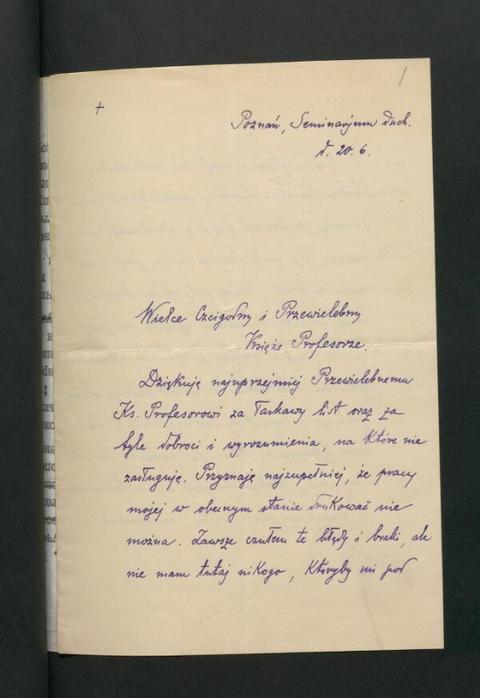 1
+
Poznań, Seminarjum duch.
d. 20. 6.
Wielce Czcigodny i Przewielebny
Księże Profesorze.
Dziękuję najuprzejmiej Przewielebnemu
Ks. Profesorowi za łaskawy list oraz za
tyle dobroci i wyrozumienia, na które nie
zasługuję. Przyznaję najzupełniej, że pracy
mojej w obecnym stanie drukować nie
można. Zawsze czułem te błędy i braki, ale
nie mam tutaj nikogo, któryby mi pod